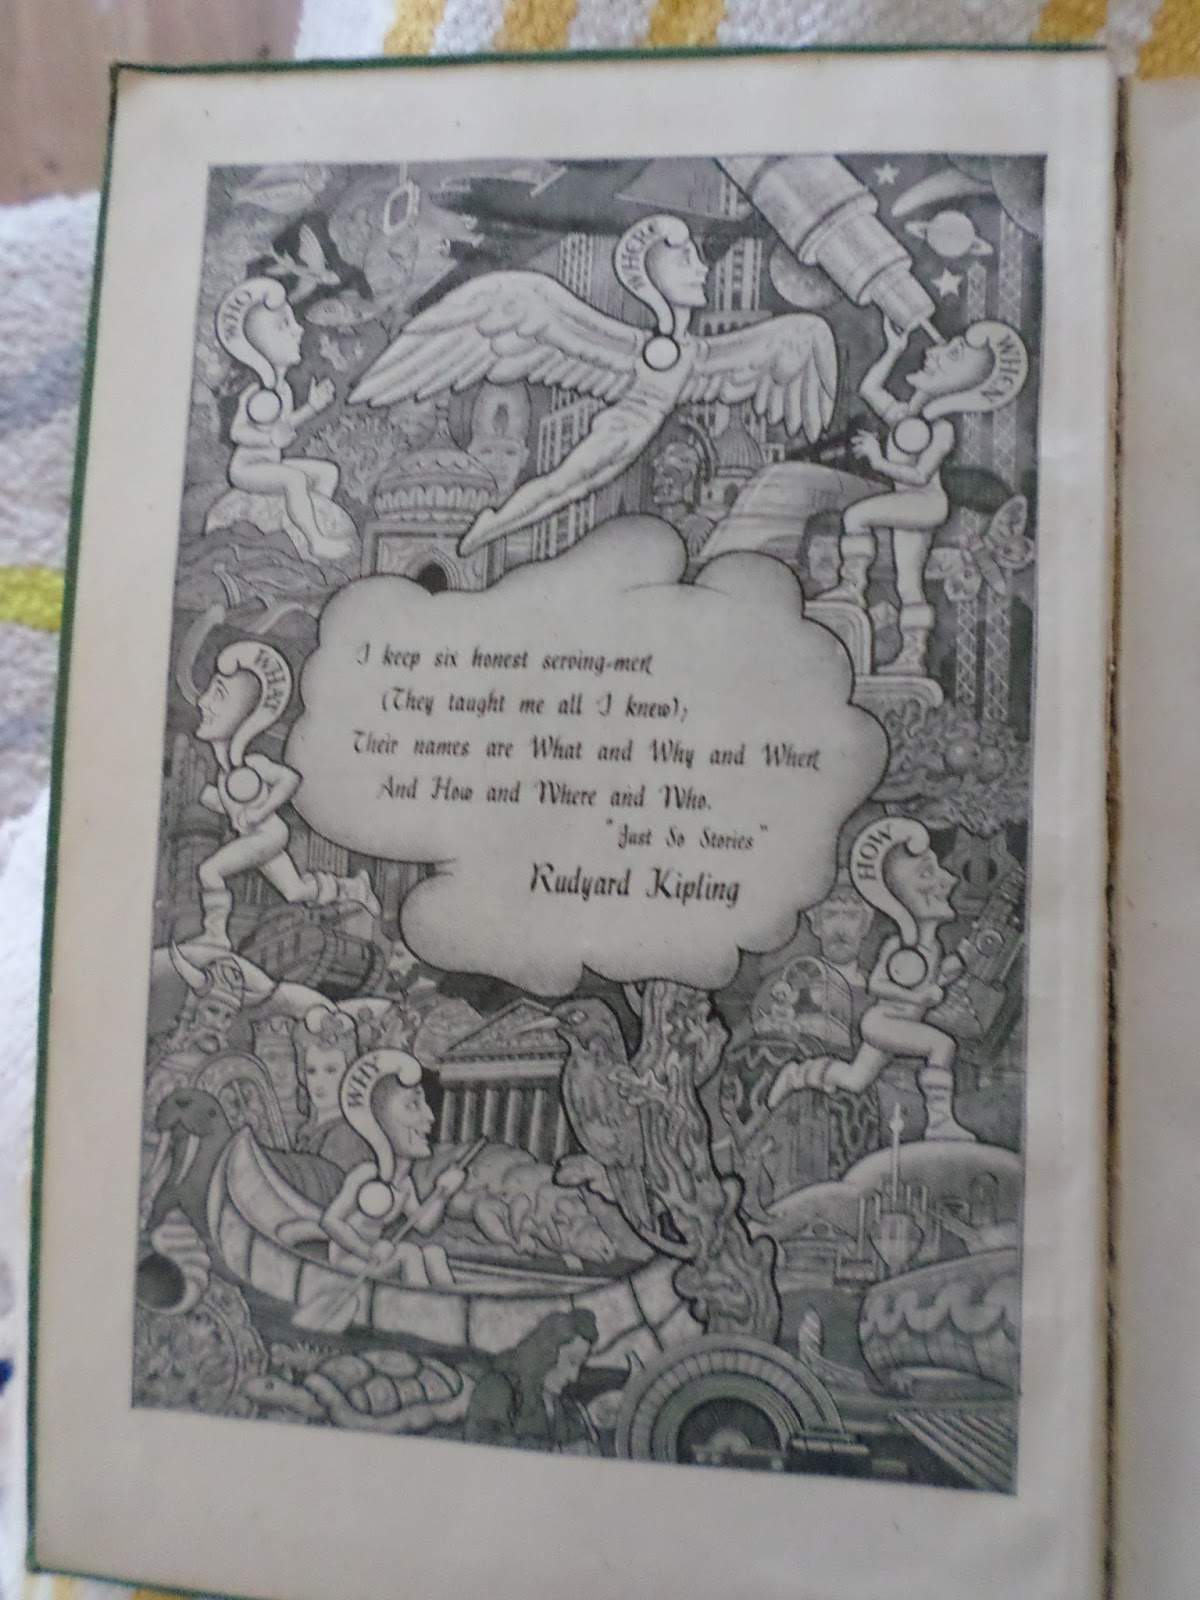 WHO
WHERE
WHEN
I keep six honest serving-men
(They taught me all I knew);
Their names are What and Why and When
And How and Where and Who.
"Just So Stories"
Rudyard Kipling
WHAT
HOW
WHY